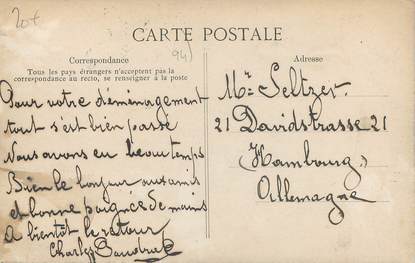 20€
94
CARTE POSTALE
Correspondance
Tous les pays étrangers n'acceptent pas la
correspondance au recto, se renseigner à la poste
Pour votre déménagement
tout s'est bien passé
Nous avons eu beau temps
Bien le bonjour aux amis
et bonne poignée de mains
A bientôt le retour
Charles
Adresse
Mr Seltzer.
21 Davidstrasse 21
Hambourg,
Allemagne